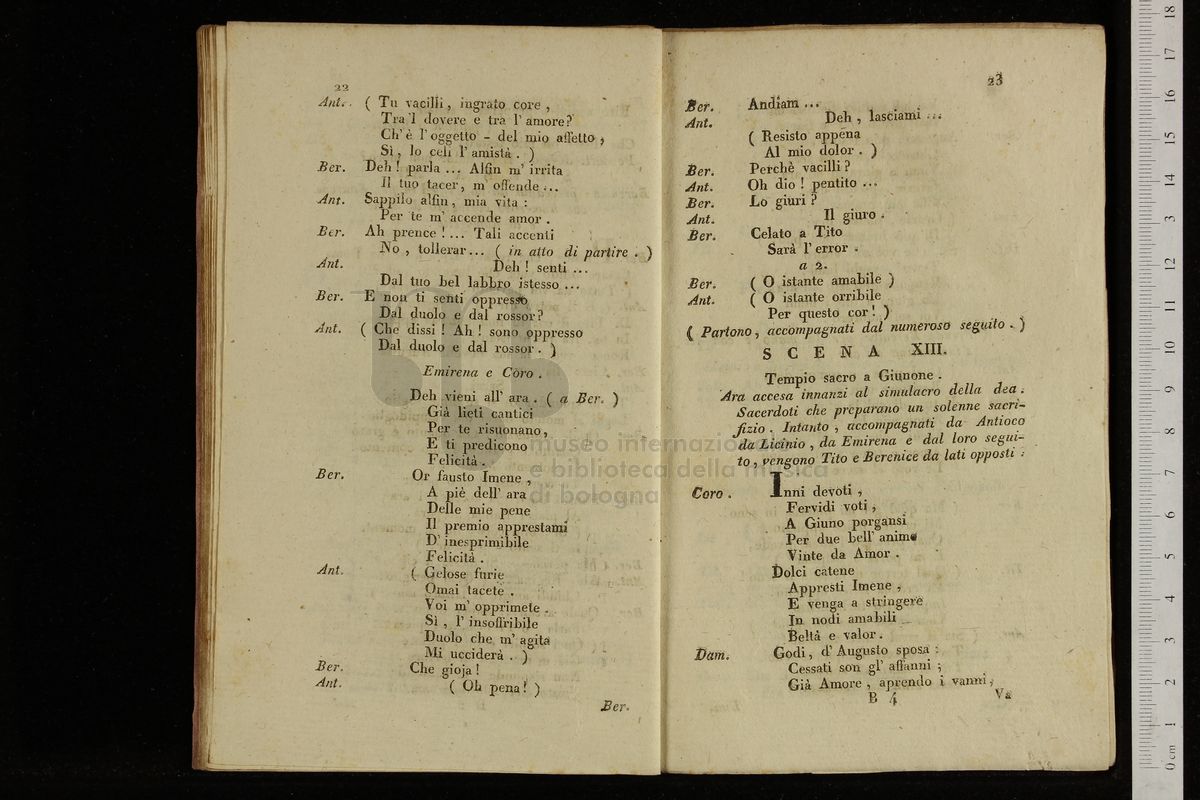 22
Ant. ( Tu vacilli, ingrato core,
Tra 'l dovere e tra l' amore?
Ch' è l' oggetto - del mio affetto,
Sì, lo celi l' amistà. )
Ber. Deh! parla ... Alfin m' irrita
Il tuo tacer, m' offende ...
Ant. Sappilo alfin, mia vita:
Per te m' accende amor.
Ber. Ah prence!... Tali accenti
No, tollerar... ( in atto di partire. )
Ant. Deh! senti ...
Dal tuo bel labbro istesso ...
Ber. E non ti senti oppresso
Dal duolo e dal rossor?
Ant. ( Che dissi! Ah! sono oppresso
Dal duolo e dal rossor. )
Emirena e Coro.
Deh vieni all' ara. ( a Ber. )
Già lieti cantici
Per te risuonano,
E ti predicono
Felicità.
Ber. Or fausto Imene,
A piè dell' ara
Delle mie pene
Il premio apprestami
D' inesprimibile
Felicità.
Ant. ( Gelose furie
Omai tacete.
Voi m' opprimete.
Sì, l' insoffribile
Duolo che m' agita
Mi ucciderà. )
Ber. Che gioja!
Ant. ( Oh pena! )
Ber.
23
Ber. Andiam ...
Ant. Deh, lasciami ...
( Resisto appena
Al mio dolor. )
Ber. Perchè vacilli?
Ant. Oh dio! pentito ...
Ber. Lo giuri?
Ant. Il giuro.
Ber. Celato a Tito
Sarà l' error.
a 2.
Ber. ( O istante amabile )
Ant. ( O istante orribile
Per questo cor! )
( Partono, accompagnati dal numeroso seguito. )
SCENA XIII.
Tempio sacro a Giunone.
Ara accesa innanzi al simulacro della dea.
Sacerdoti che preparano un solenne sacri-
fizio. Intanto, accompagnati da Antioco
da Licinio, da Emirena e dal loro segui-
to, vengono Tito e Berenice da lati opposti:
Coro. Inni devoti,
Fervidi voti,
A Giuno porgansi
Per due bell' anime
Vinte da Amor.
Dolci catene
Appresti Imene,
E venga a stringere
In nodi amabili
Beltà e valor.
Dam. Godi, d' Augusto sposa:
Cessati son gl' affanni;
Già Amore, aprendo i vanni,
B 4 Va
museo internazionale
e biblioteca della musica
di bologna
0 cm 1 2 3 4 5 6 7 8 9 10 11 12 13 14 15 16 17 18